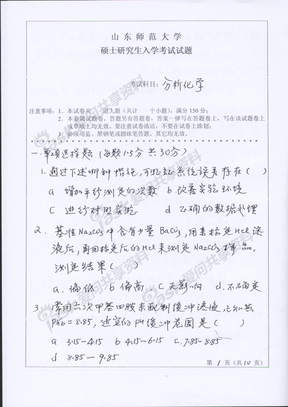 山东师范大学
硕士研究生入学考试试题
考试科目:分析化学
注意事项:1.本试卷共 道大题(共计 个小题),满分150分;
2.本卷属试题卷,答题另有答题卷,答案一律写在答题卷上,写在该试题卷上
或草纸上均无效。要注意试卷清洁,不要在试卷上涂划;
一.单项选择题(每题1.5分 共30分)
1.通过下述哪种措施,可以证系统误差存在( )
a 增加平行测定的次数 b 改善实验环境
c 进行对照实验 d 正确的数据处理
2. 基准Na2CO3中含有少量BaCO3,用来标定HCl溶
液后,再用标定后的HCl来测定Na2CO3样品,
测定结果( )
a.偏低 b 偏高 c 无影响 d 不确定
3 常用六次甲基四胺来配制缓冲溶液,已知其
Pkb=8.85,适宜的PH缓冲范围是( )
a 3.15-4.15 b 4.15-6.15 c 7.85-8.85
d 8.85-9.85
第1页(共10页)